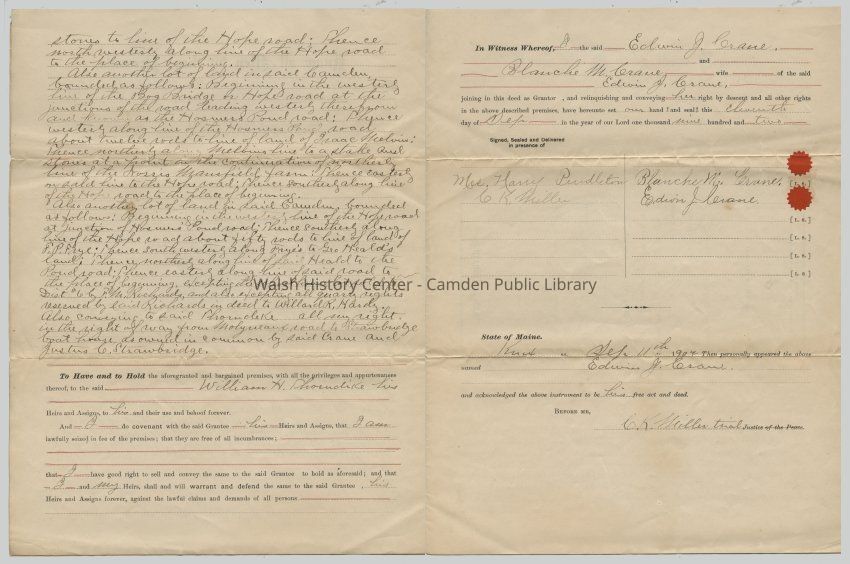 stones to line of the Hope road; Thence
north westerly along line of the Hope road
to the place of beginning.
Also another lot of land in said Camden,
bounded as follows: Beginning in the westerly
line of the Bog Bridge or Hope road at the
junction of the road leading westerly therefrom
and known as the Hosmers Pond road; Thence
westerly along line of the Hosmers Pond road
about twelve rods to line of land of Isaac
thence northerly along line to a stake and
stones at a point on the continuation of northerly
line of the Mansfield farm; thence easterly
on said line to the Hope road; thence southerly along line
of the Hope road to the place of beginning.
Also another lot of land in said Camden, bounded
as follows: Beginning in the westerly line of the Hope road
at junction of Hosmers Pond road; Thence southerly along
line of the Hope road about fifty rods to line of land of
Frye; thence south westerly along Frye's to Geo Heald's
land; Thence northerly along line of said Heald to the
Pond road; thence easterly along line of said road to
the place of beginning, excepting
Richards, and also excepting all quarry rights
reserved by said Richards in deed to Willard K. Hardy.
Also, conveying to said Thorndike all my right
in the right of way from Molyneaux road to Strawbridge
boat house as owned in common by said Crane and
Justus C. Strawbridge.
To Have and to Hold the aforegranted and bargained premises, with all the privileges and appurtenances
thereof, to the said William H. Thorndike his
Heirs and Assigns, to his and their use and behoof forever.
And I do covenant with the said Grantee his Heirs and Assigns, that I am
lawfully seized in fee of the premises; that they are free of all incumbrances;
that I have good right to sell and convey the same to the said Grantee to hold as aforesaid; and that
I and my Heirs, shall and will warrant and defend the same to the said Grantee, his
Heirs and Assigns forever, against the lawful claims and demands of all persons
In Witness Whereof, I the said Edwin J. Crane,
and
Blanche M. Crane, wife of the said
Edwin J. Crane,
joining in this deed as Grantor, and relinquishing and conveying her right by descent and all other rights
in the above described premises, have hereunto set our hand and seal this eleventh
day of Sep in the year of our Lord one thousand nine hundred and two
Signed, Sealed and Delivered
in presence of
Mrs. Harry Pendleton Blanche M. Crane. [L. S.]
C K Miller Edwin J. Crane.
[L. S.]
[L. S.]
[L. S.]
State of Maine.
Knox ss Sep 11th 190 Then personally appeared the above
named Edwin J. Crane.
and acknowledged the above instrument to be his free act and deed.
BEFORE ME,
C K Miller Justice of the Peace.
Walsh History Center - Camden Public Library